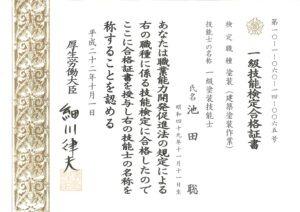 第一〇-一-〇六〇-一四-〇〇六五号
一級技能検定合格証書
検定職種 塗装(建築塗装作業)
技能士の名称 一級塗装技能士
氏名 池田 聡
昭和四十九年十一月十一日生
あなたは職業能力開発促進法の規定による
右の職種に係る技能検定に合格したので
ここに合格証書を授与し右の技能士の名称を
称することを認める
平成二十二年十月一日
厚生労働大臣 細川律夫